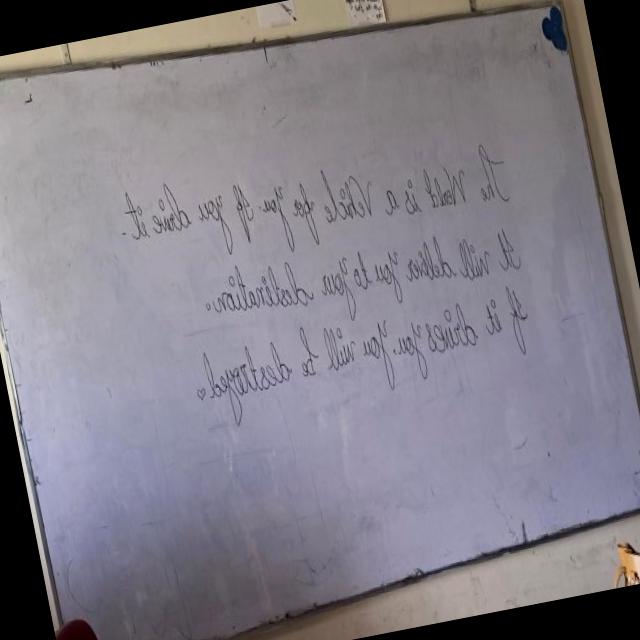 The Mind is a Vehicle for you If you drive it.
It will deliver you to your destination.
If it drives you, you will be destroyed.